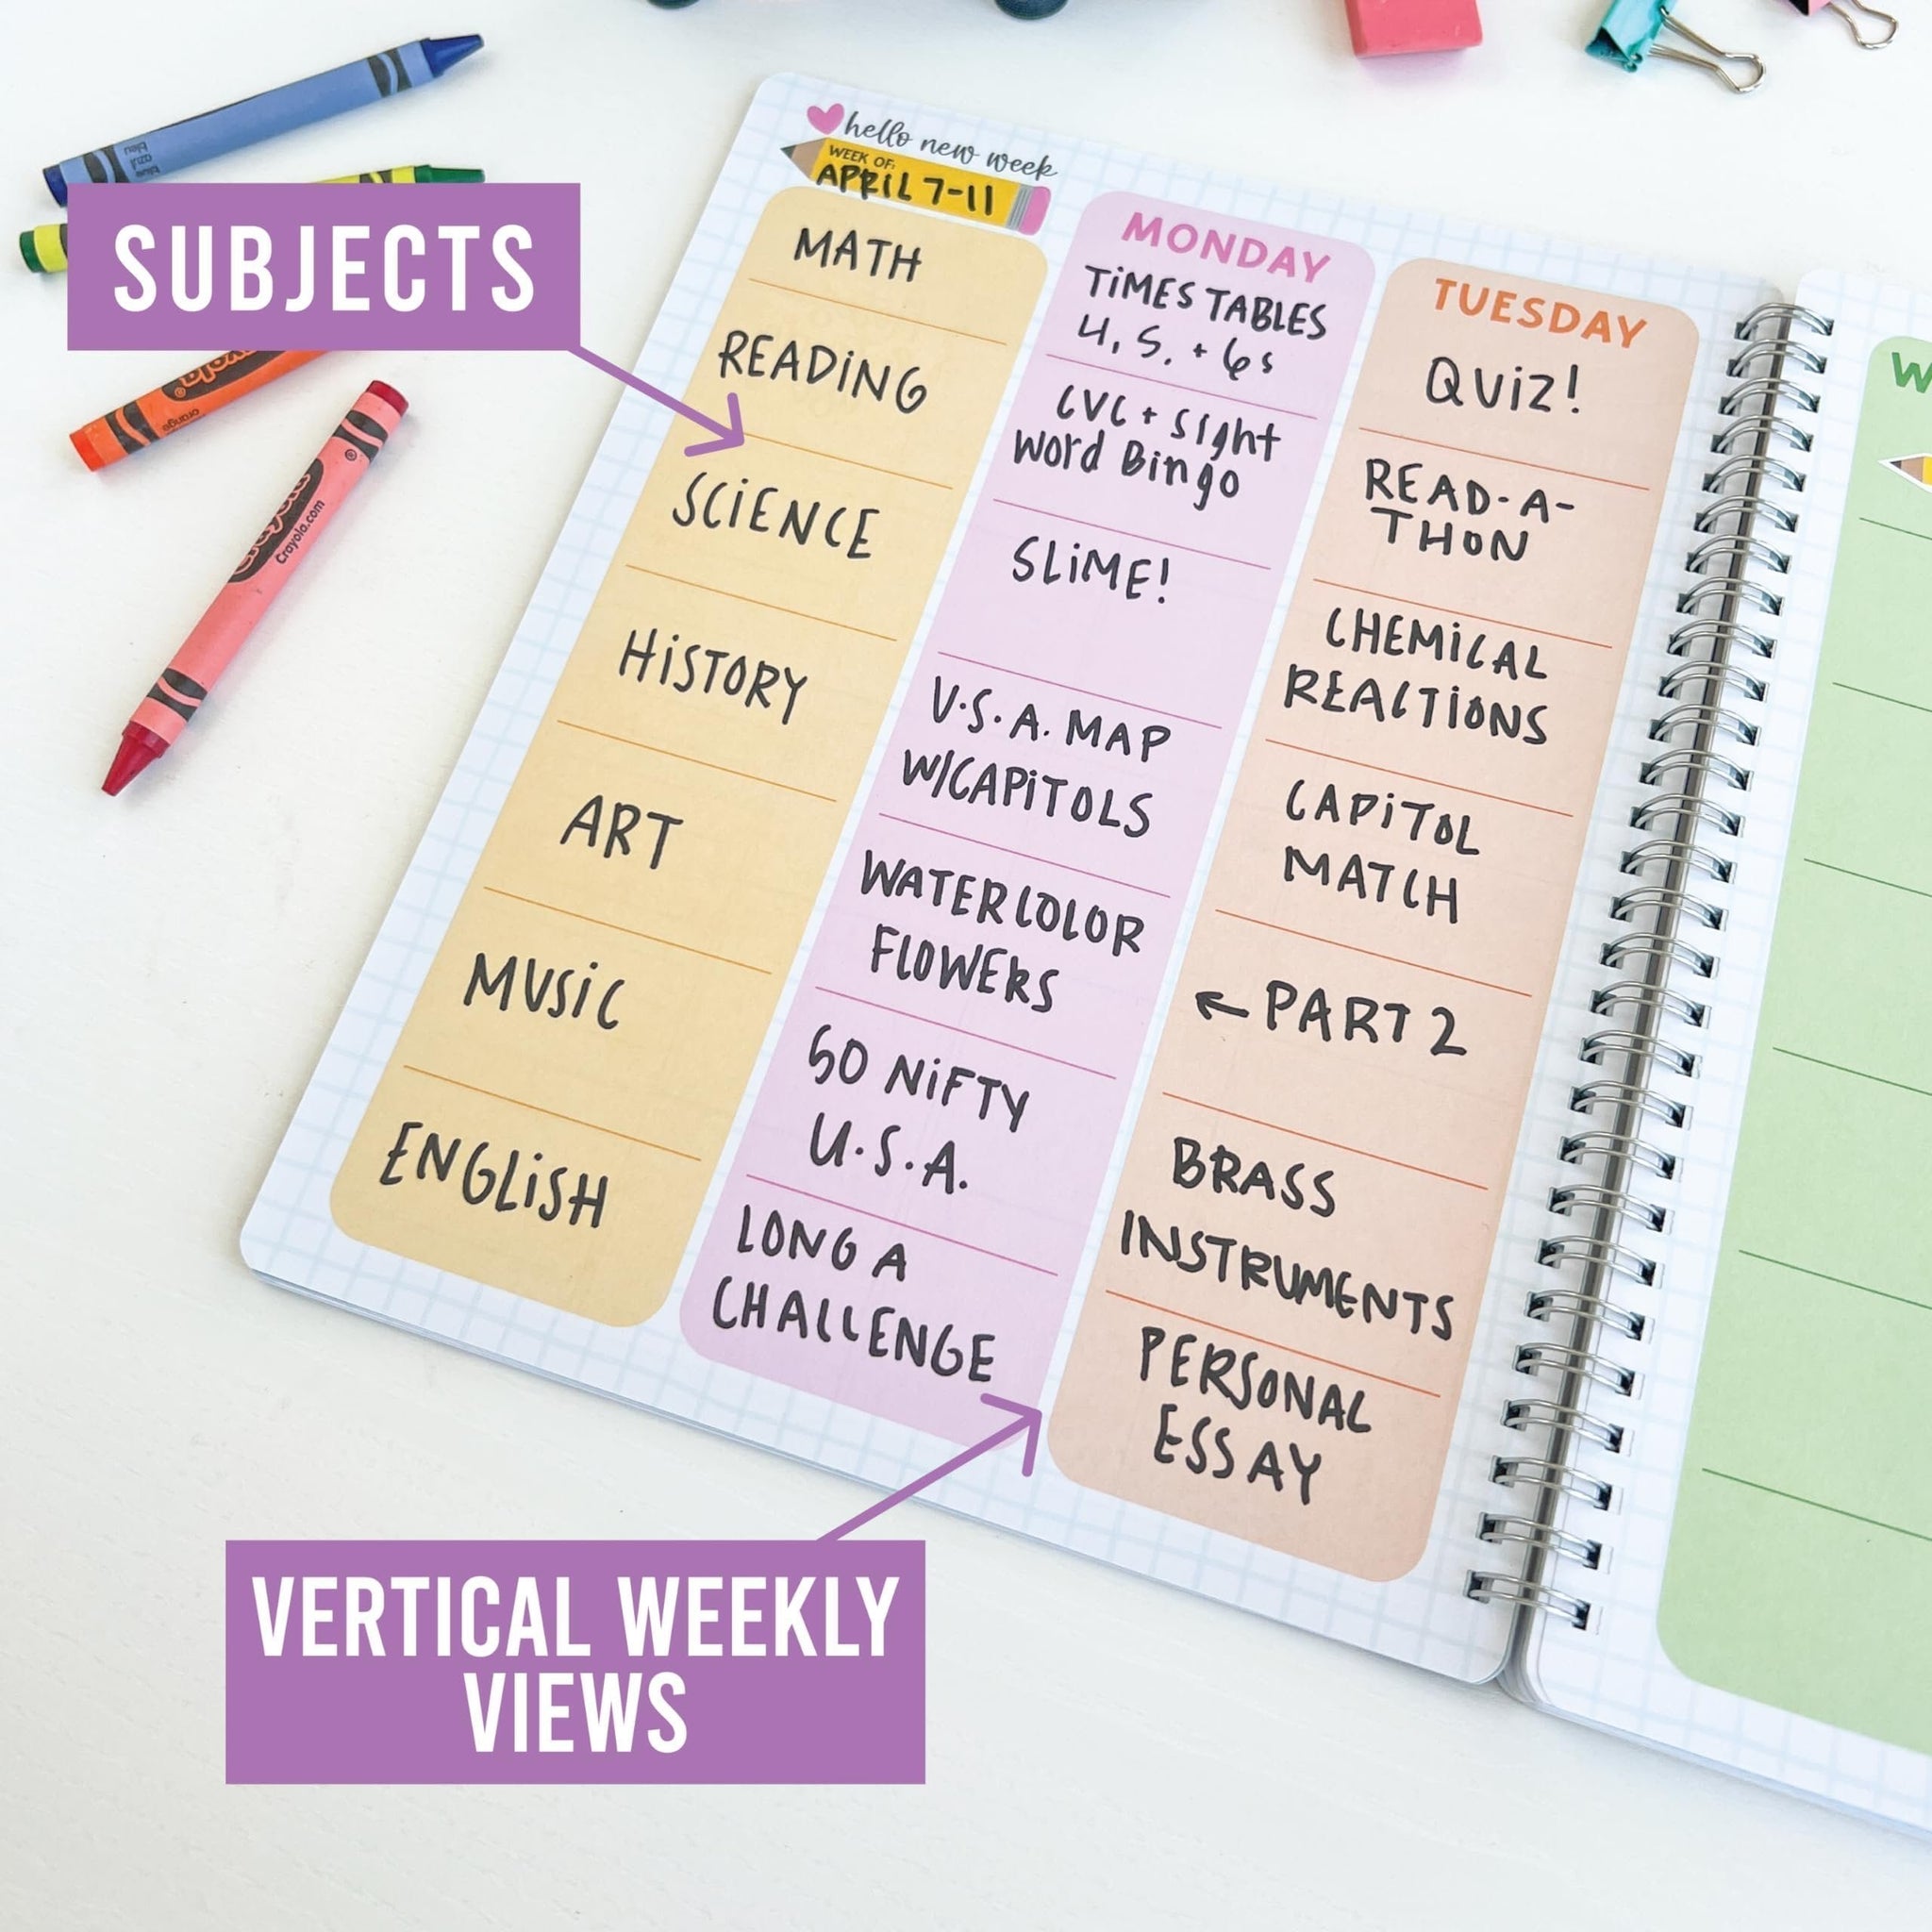 hello new week
WEEK OF:
APRiL 7-11
SUBJECTS
MATH
READiNG
SCiENCE
HiSTORY
ART
MUSiC
ENGLiSH
MONDAY
TiMES TABLES
4, 5, + 6s
CVC + Sight
Word Bingo
SLiME!
U.S.A. MAP
W/CAPiTOLS
WATERCOLOR
FLOWERS
50 NiFTY
U.S.A.
LONG A
CHALLENGE
TUESDAY
QUiZ!
READ-A-
THON
CHEMiCAL
REACTiONS
CAPiTOL
MATCH
← PART 2
BRASS
INSTRUMENTS
PERSONAL
ESSAY
W
VERTICAL WEEKLY
VIEWS
bleu
azul
blue
orange
Crayola
Crayola.com